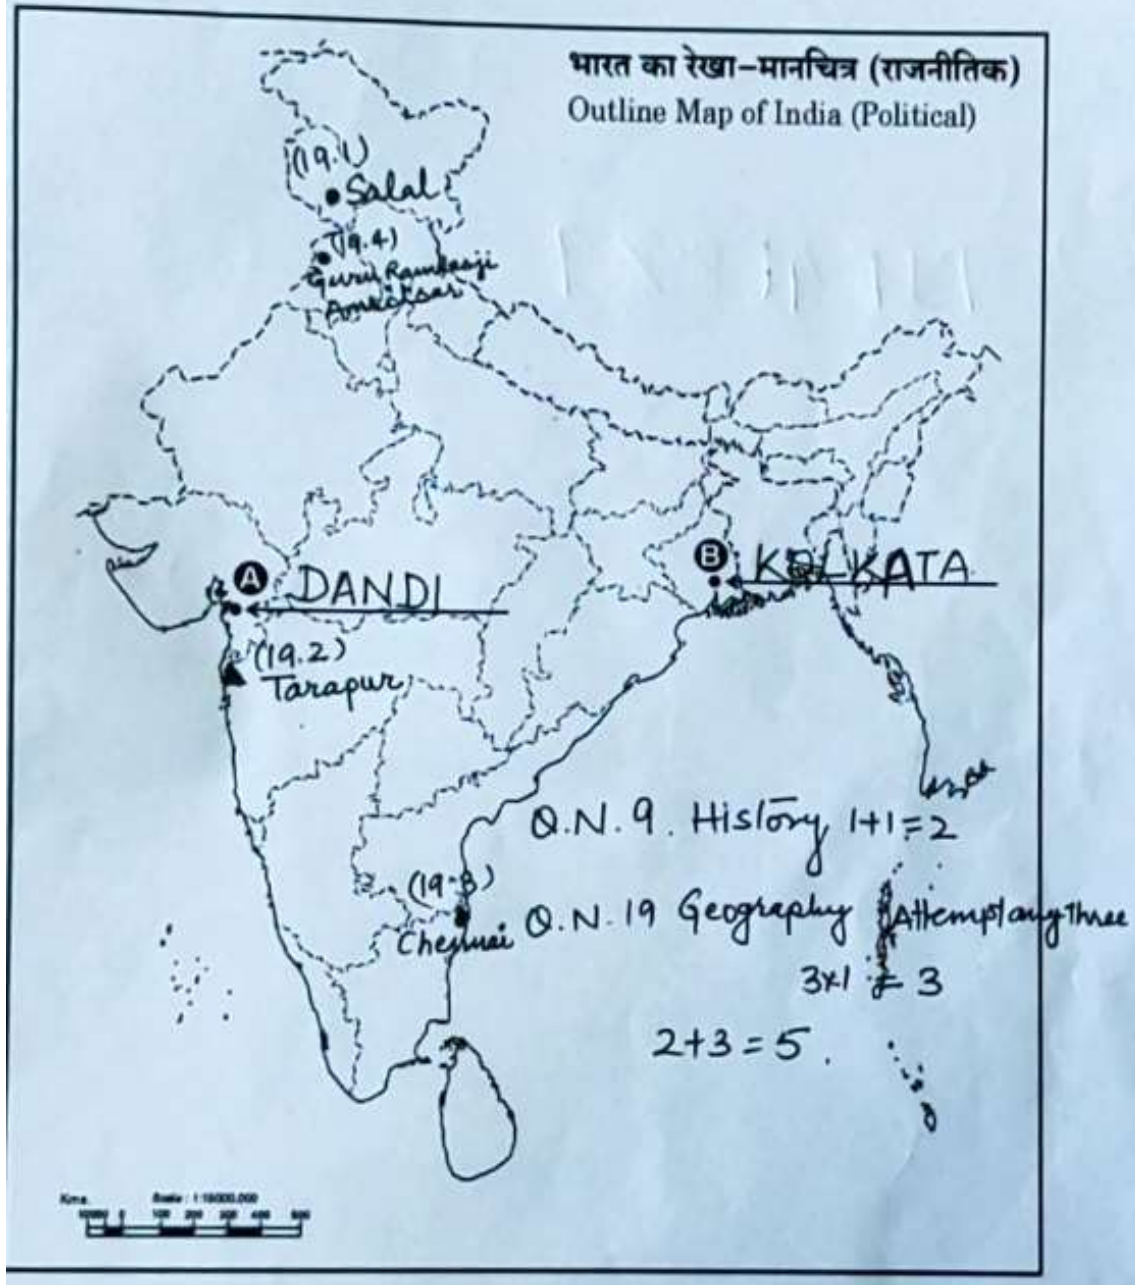 भारत का रेखा-मानचित्र (राजनीतिक)
Outline Map of India (Political)
(19.1)
Salal
(19.4)
Guru Ramdasji
Amritsar
A
DANDI
B
KOLKATA
(19.2)
Tarapur
Q.N.9. History 1+1=2
(19.3)
Chennai
Q.N.19 Geography Attempt any three
3x1 = 3
2+3=5.
Kms.
Scale : 1:16000,000
0 100 200 300 400 500